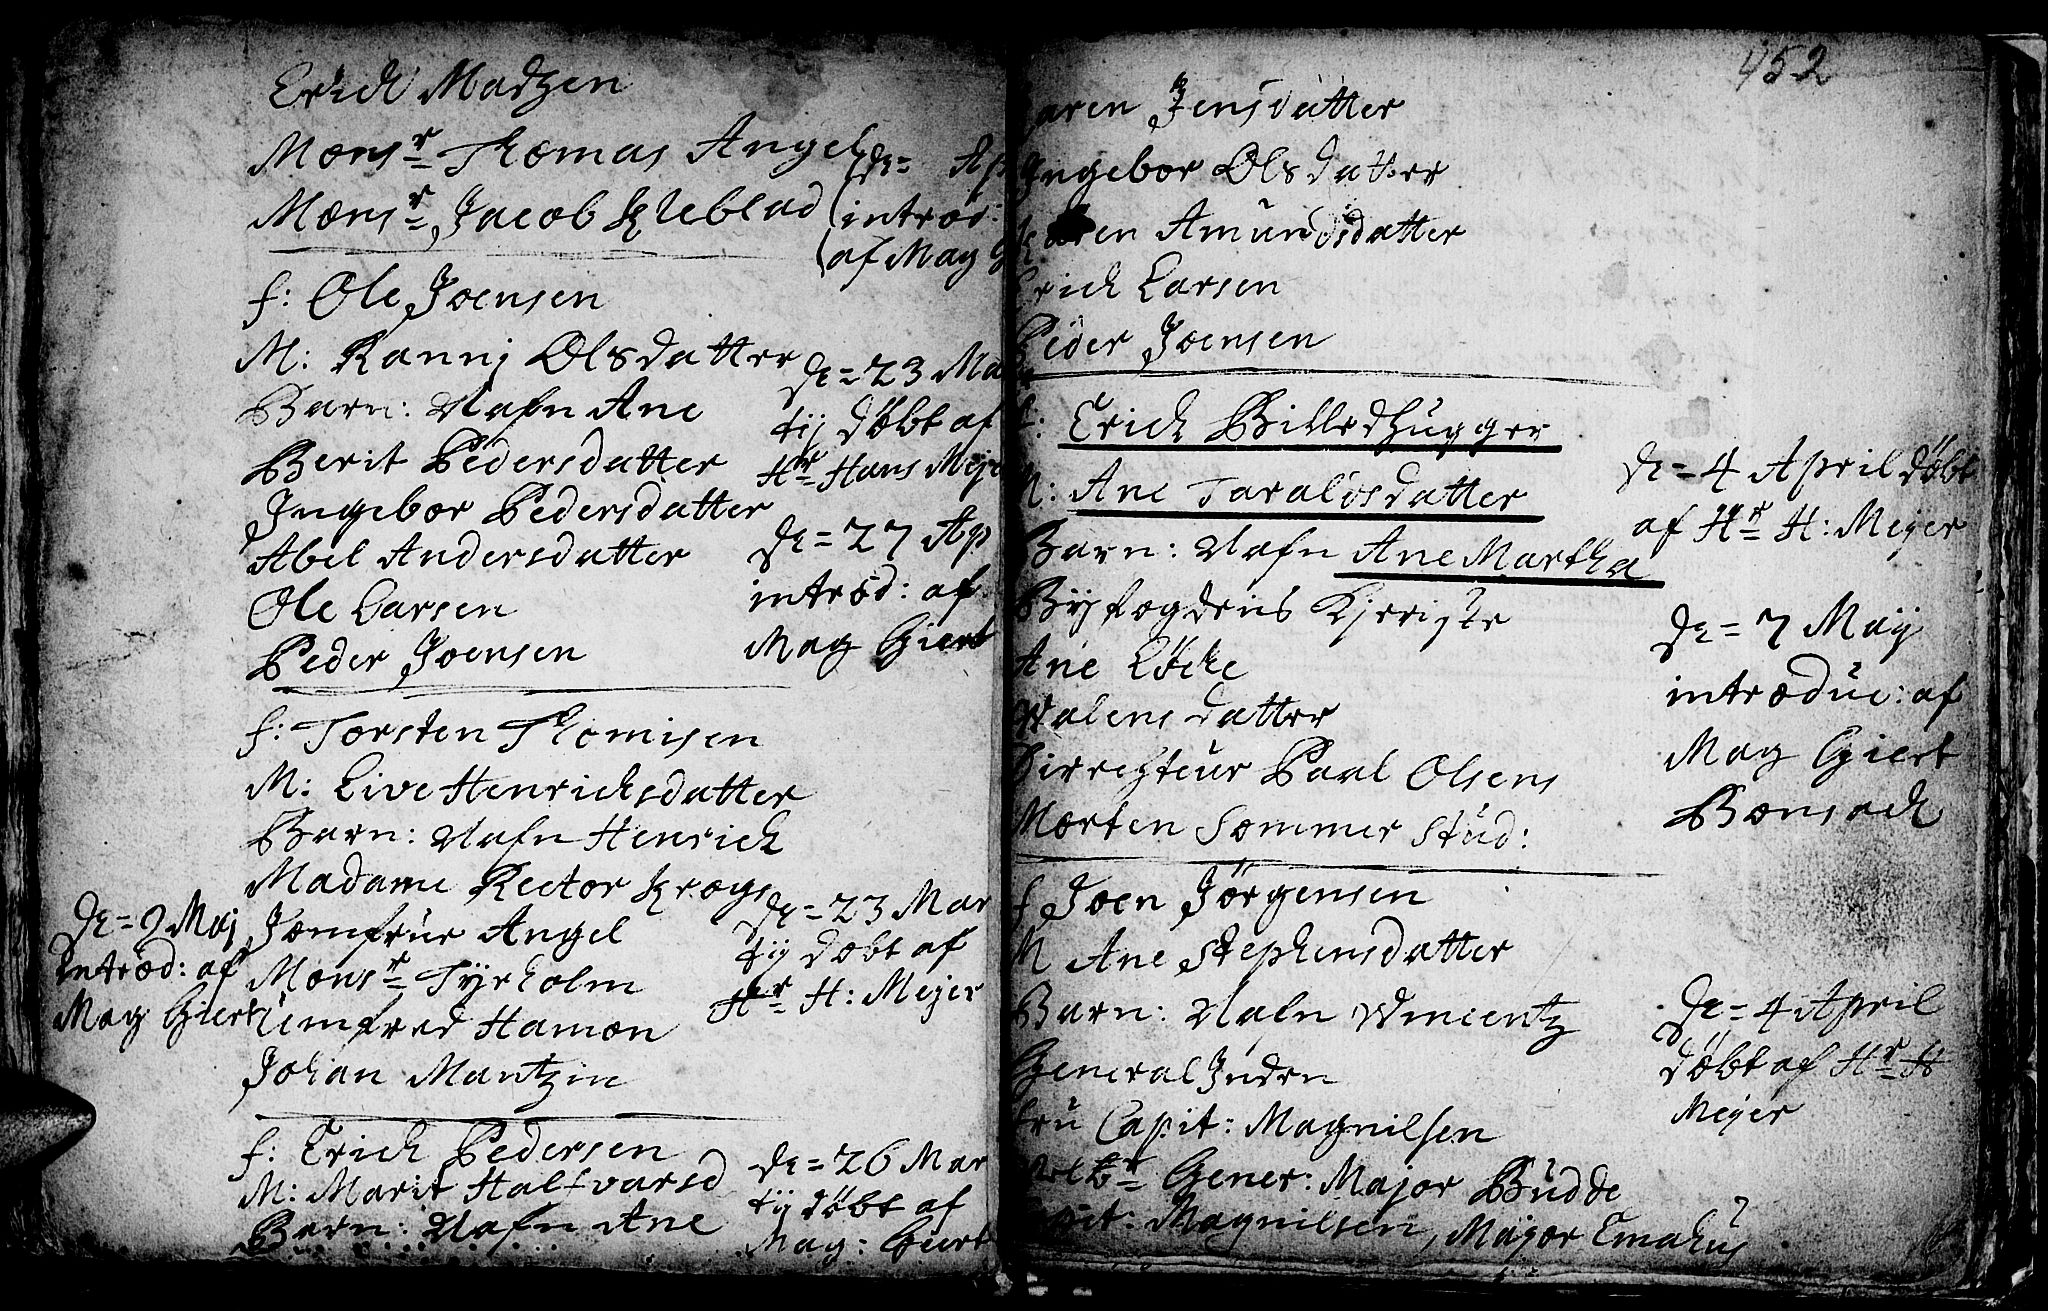 Erich Madzen
Monsr Thomas Angel
Monsr Jacob Kleblad
de= Ap
introd:
af Mag G
f: Ole Joensen
M: Ranni Olsdatter
Barn: Nafn Ane
Berit Pedersdatter
Ingebor Pedersdatter
Abel Andersdatter
Ole Larsen
Peder Joensen
de=23 Ma
tij döbt af
Hr Hans Mejer
de=27 Ap
introd: af
Mag Giert
f: Torsten Thomisen
M: Live Henrichsdatter
Barn: Nafn Henrich
Madame Rector Krogs
Jomfrue Angel
Monsr Tyrholm
Umfred Hamon
Johan Mantzin
de=23 Mar
tij döbt af
Hr H: Mejer
de=2 Maj
introd: af
Mag Giert
f: Erich Pedersen
M: Marit Halfvarsd
Barn: Nafn Ane
de=26 Mar
tij döbt af
Mag: Giert
452
Karen Jensdatter
Ingebor Olsdatter
Karen Amundsdatter
Erich Larsen
Peder Joensen
f: Erich Billedhugger
M: Ane Taraldsdatter
Barn: Nafn Ane Martha
Byfogdens Kjeriste
Ane Löche
Walensdatter
Dirrechteur Paul Olsens
Morten Sommer Stud:
de=4 April döbt
af Hr H: Mejer
de=7 Maij
introduc: af
Mag Giert
Bonsach
f Joen Jörgensen
M Ane Stephensdatter
Barn: Nafn Wincentz
General Juden
fru Capit: Magnilsen
Gener: Major Budde
Capit: Magnilsen, Major Emahus
de=4 April
döbt af Hr H
Mejer